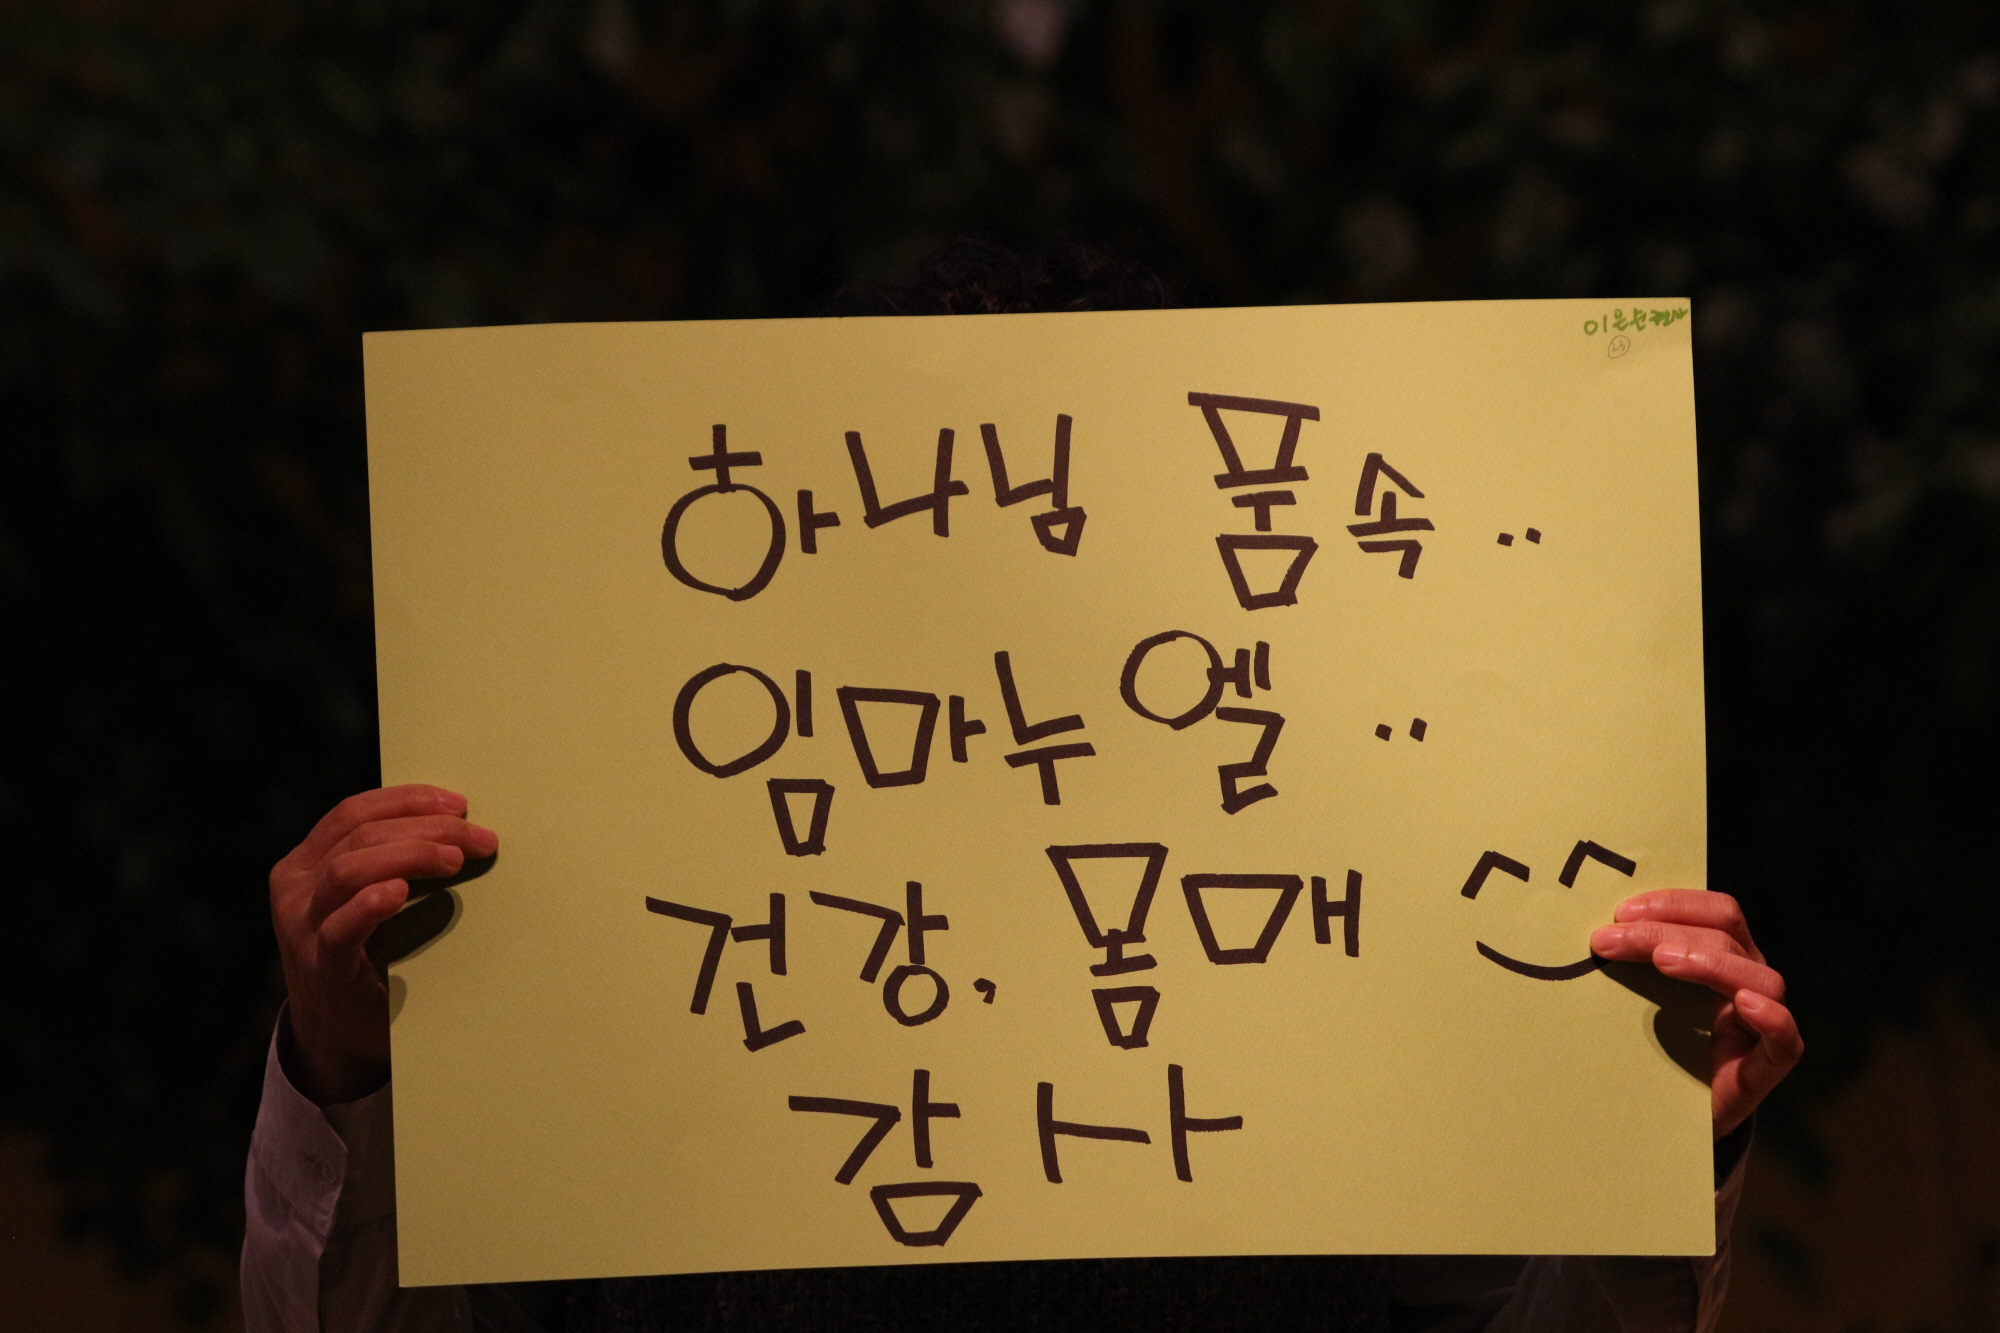 이은순권사
23
하나님 품속..
임마누엘..
건강, 몸매
감사